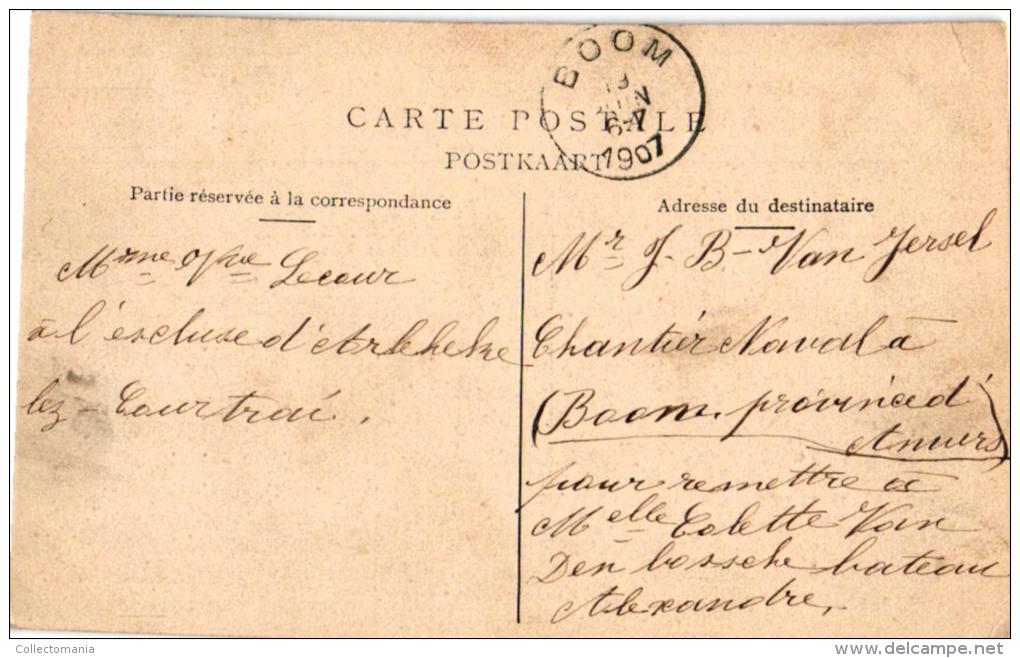 BOOM
19
JUIN
6-7
1907
CARTE POSTALE
POSTKAART
Partie réservée à la correspondance
Mme Vve Lecour
à l'escluse d'
lez-Courtrai.
Adresse du destinataire
Mr J-B-Van Jersel
Chantier Naval à
(Boom. province d'
Anvers)
pour remettre à
Melle Colette Van
Den bossche bateau
Alexandre.
Collectomania
www.delcampe.net